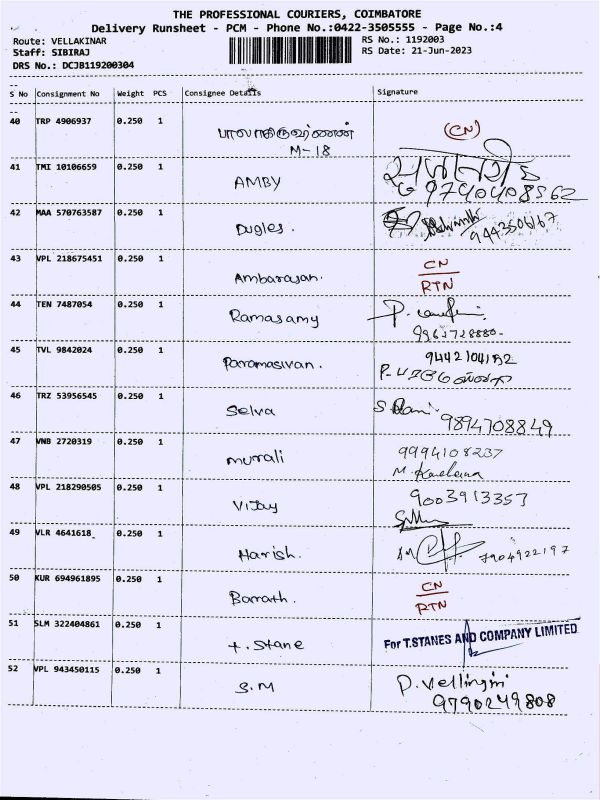 THE PROFESSIONAL COURIERS, COIMBATORE
Delivery Runsheet - PCM - Phone No.:0422-3505555 - Page No.:4
Route: VELLAKINAR RS No.: 1192003
Staff: SIBIRAJ RS Date: 21-Jun-2023
DRS No.: DCJB119200304
S No Consignment No Weight PCS Consignee Details Signature
40 TRP 4906937 0.250 1 (CN)
M-18
41 TMI 10106659 0.250 1 AMBY
9740408562
42 MAA 570763587 0.250 1 Dugles.
9443506167
43 VPL 218675451 0.250 1 Ambarasan. CN
RTN
44 TEN 7487054 0.250 1 Ramasamy P.
45 TVL 9842024 0.250 1 Paramasivan.
46 TRZ 53956545 0.250 1 Selva S.
9894708849
47 VNB 2720319 0.250 1 murali 9994108237
M.
48 VPL 218290505 0.250 1 Vijay 9003913357
49 VLR 4641618 0.250 1 Harish. 7904922197
50 KUR 694961895 0.250 1 Barrath. CN
RTN
51 SLM 322404861 0.250 1 t. Stane For T.STANES AND COMPANY LIMITED
52 VPL 943450115 0.250 1 S.M P. Vellingiri
9790249808